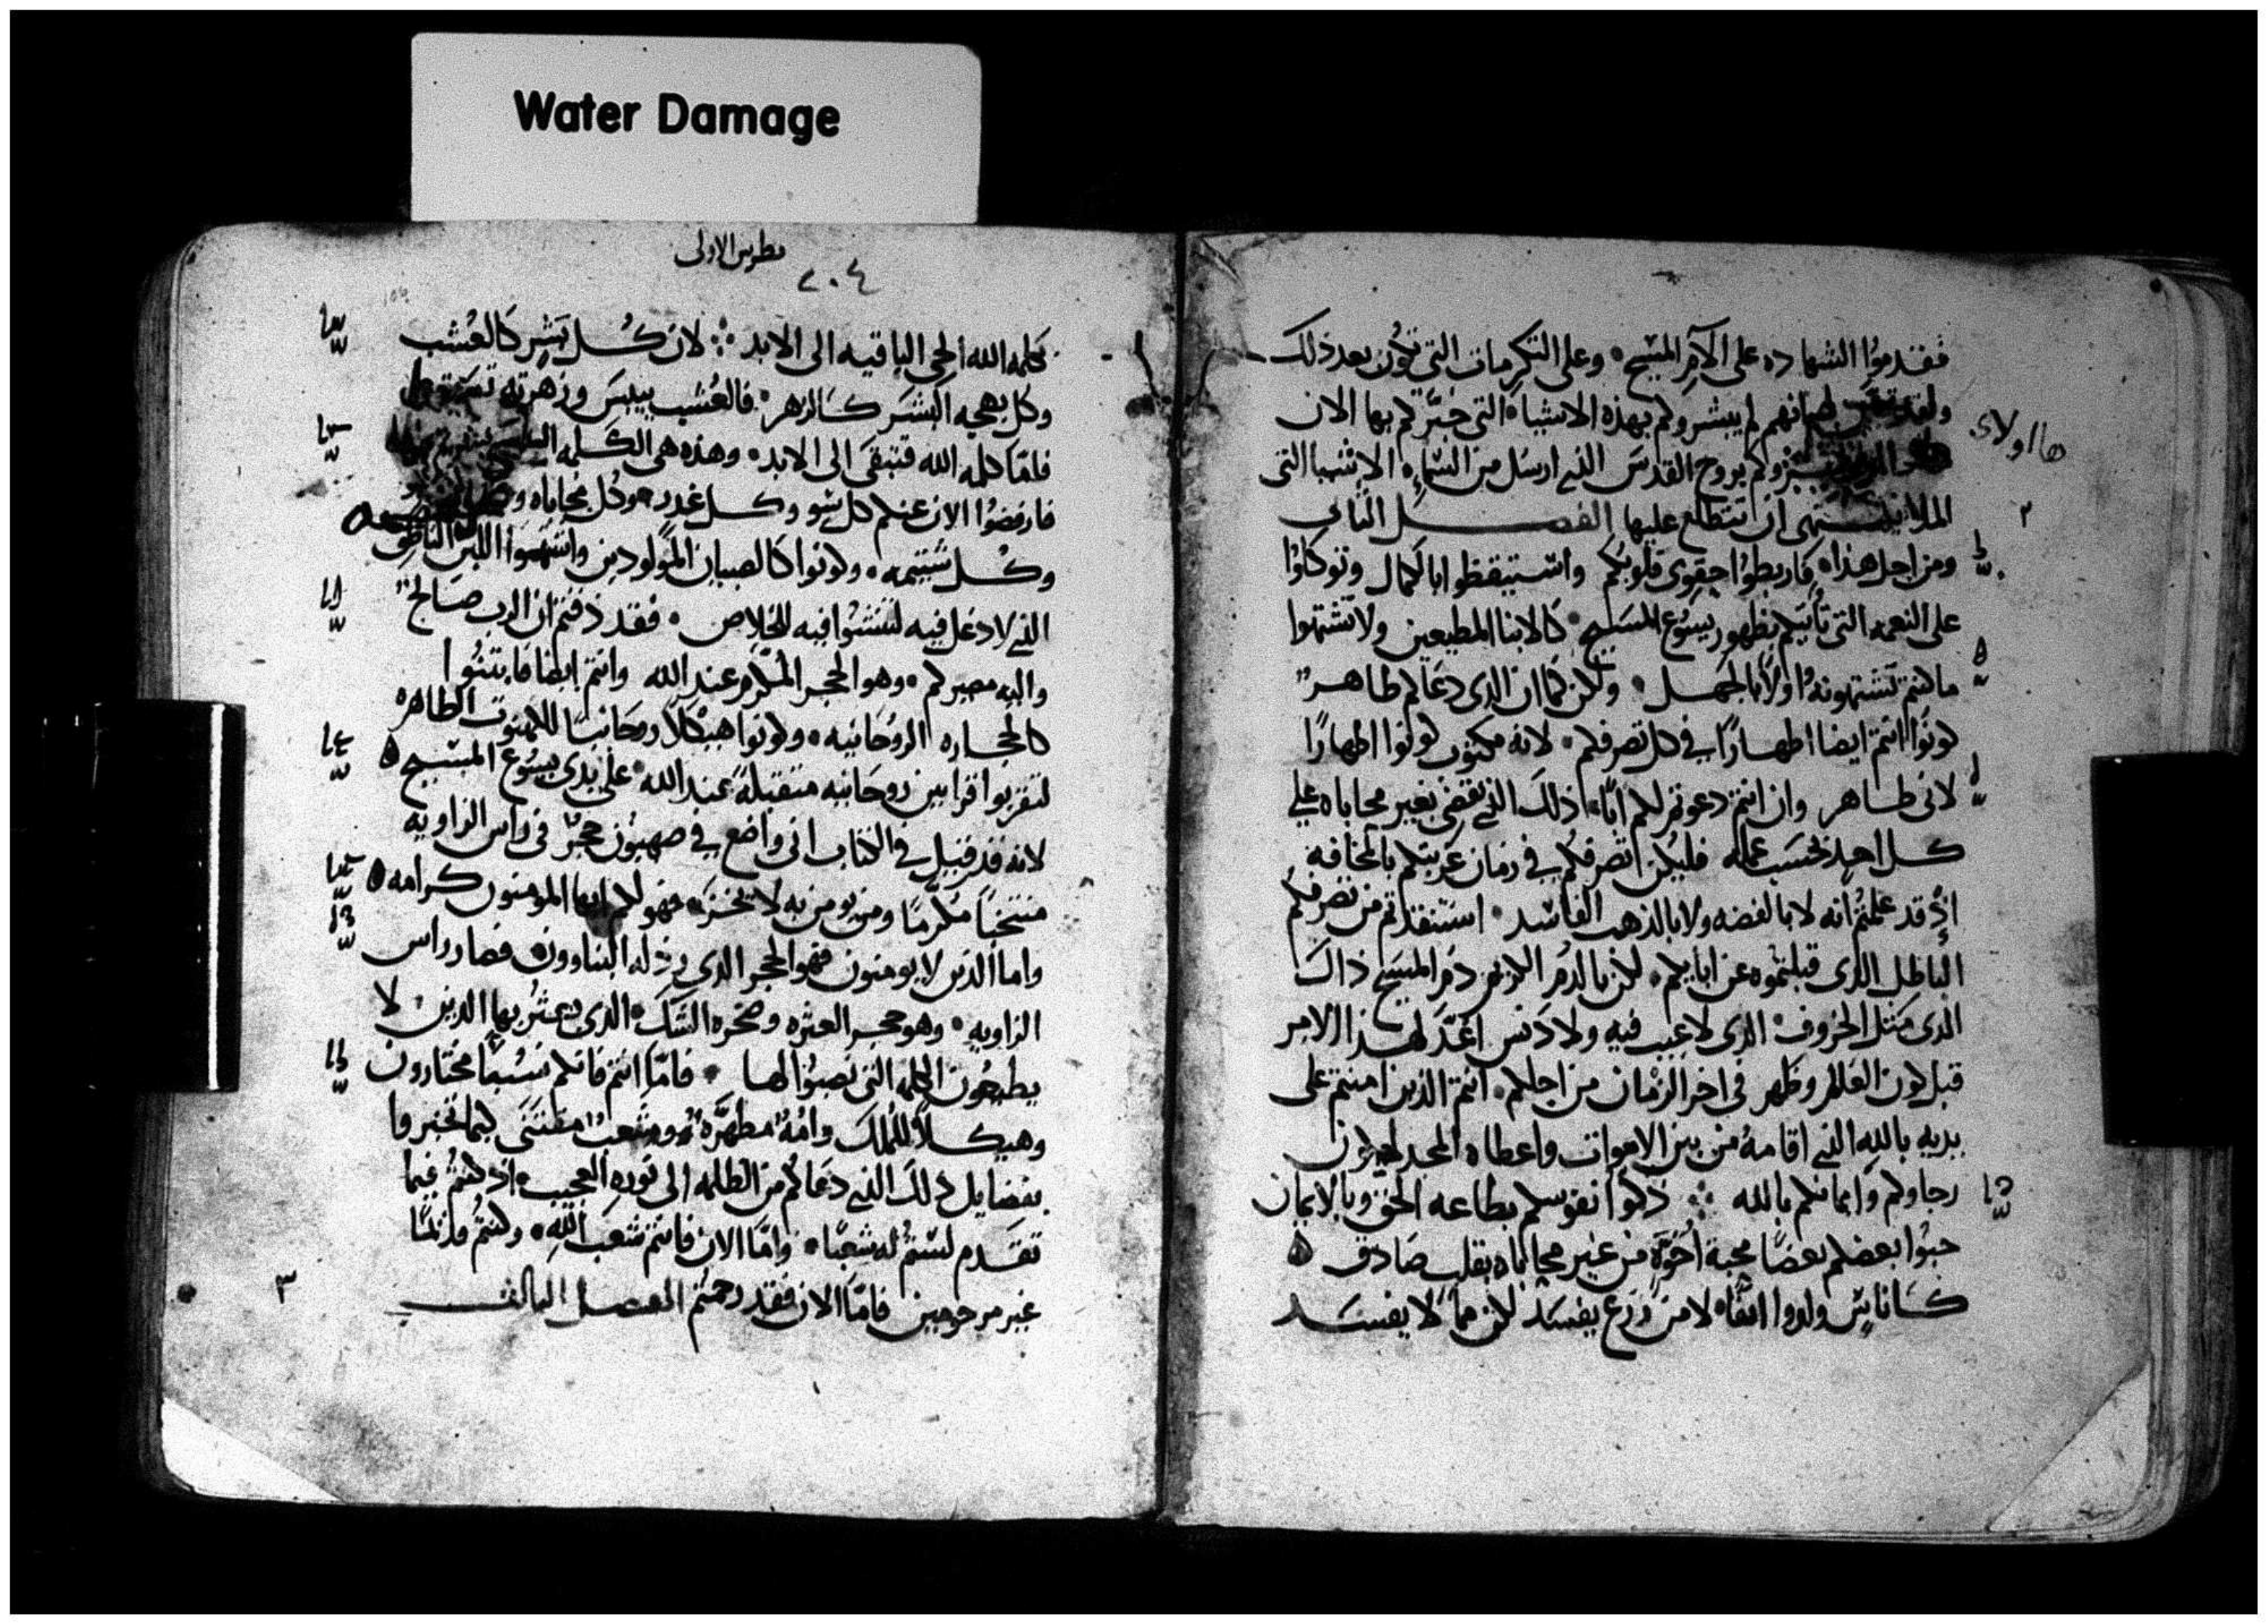 Water Damage
فقدموا الشهاده على الآم المسيح وعلى التكرمات التى تكون بعد ذلك
لهم انهم لم يبشروكم بهذه الاشياء التى خبرتم بها الان
هااولاى
بروح القدس الذى ارسل من السماء الاشيا التى
تشتهى ان تتطلع عليها الفصل الثانى
٢
ومن اجل هذا فاربطوا حقوى قلوبكم واستيقظوا بالكمال وتوكلوا
على النعمه التى تأتيكم بظهور يسوع المسيح كالابنا المطيعين ولا تشتهوا
ما كنتم تشتهونه اولا بالجهل ولكن كما ان الذى دعاكم طاهر
كونوا انتم ايضا اطهارا فى كل تصرفكم لانه مكتوب كونوا اطهارا
لانى طاهر وان انتم دعوتم لكم ابا ذلك الذى يقضى بغير محاباه على
كل احد بحسب عمله فليكن تصرفكم فى زمان غربتكم بالمخافه
اذ قد علمتم انه لا بالفضه ولا بالذهب الفاسد استنقذتم من تصرفكم
الباطل الذى قبلتموه عن ابايكم لكن بالدم الكريم دم المسيح ذاك
الذى كمثل الخروف الذى لا عيب فيه ولا دنس اعد لهذا الامر
قبل كون العالم وظهر فى اخر الزمان من اجلكم انتم الذين امنتم على
يديه بالله الذى اقامه من بين الاموات واعطاه المجد ليكون
رجاوكم وايمانكم بالله ذكوا نفوسكم بطاعه الحق وبالايمان
حبوا بعضكم بعضا محبة اخوة من غير محاباه بقلب صادق
كاناس ولدوا انفا لا من زرع يفسد لكن مما لا يفسد
بطرس الاولى
٢٠٤
كلمه الله الحى الباقيه الى الابد لان كل بشر كالعشب
وكل بهجه البشر كالزهر فالعشب ييبس وزهرته
فاما كلمه الله فتبقى الى الابد وهذه هى الكلمه
فارفضوا الان عنكم كل سو وكل غدر وكل محاباه
وكل شتيمه وكونوا كالصبيان المولودين واشتهوا اللبن الناطق
الذى لا دغل فيه لتنشوا فيه للخلاص فقد ذقتم ان الرب صالح
واليه مصيركم وهو الحجر المكرم عند الله وانتم ايضا فابتنوا
كالحجاره الروحانيه وكونوا هيكلا روحانيا للكهنوت الطاهره
لتقربوا قرابين روحانيه متقبلة عند الله على يدى يسوع المسيح
لانه قد قيل فى الكتاب انى واضع فى صهيون حجر فى راس الزاويه
منتخبا مكرما ومن يومن به لا يخزى فهو لكم ايها المومنون كرامه
واما الذين لا يومنون فهو الحجر الذى رذله البناوون فصار راس
الزاويه وهو حجر العثره وصخره الشك الذى يعثر بها الذين لا
يطيعون الكلمه التى نصبوا لها فاما انتم فانكم نسبا مختارون
وهيكلا للملك وامة مطهره وشعب مقتنى كيما تخبروا
بفضايل ذلك الذى دعاكم من الظلمه الى نوره العجيب اذ كنتم فيما
تقدم لستم له شعبا واما الان فانتم شعب الله وكنتم قديما
غير مرحومين فاما الان فقد رحمتم الفصل الثالث
٣